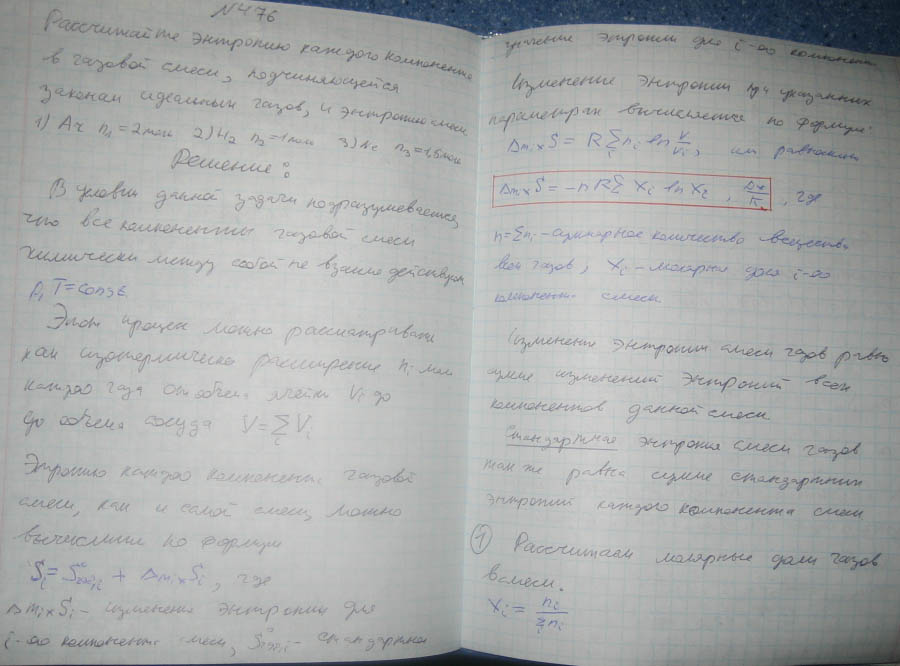 №476
Рассчитайте энтропию каждого компонента
в газовой смеси, подчиняющейся
законам идеальных газов, и энтропию смеси
1) Ar n₁ = 2 моль 2) H₂ n₂ = 1 моль 3) Ne n₃ = 1,5 моль
Решение:
В условии данной задачи подразумевается,
что все компоненты газовой смеси
химически между собой не взаимодействуют
p, T = const
Этот процесс можно рассматривать
как изотермическое расширение nᵢ моль
каждого газа от объема ячейки Vᵢ до
до объема сосуда V = ΣVᵢ
Энтропию каждого компонента газовой
смеси, как и самой смеси, можно
вычислить по формуле
Sᵢ = S°₂₉₈,ᵢ + ΔmixSᵢ, где
ΔmixSᵢ - изменение энтропии для
i-ого компонента смеси, S°₂₉₈,ᵢ - стандартная
энтропии для i-ого компонента
Изменение энтропии при указанных
параметрах вычисляется по формуле:
ΔmixS = RΣnᵢ ln V/Vᵢ, или равносильно
ΔmixS = -nRΣXᵢ ln Xᵢ, Дж/К, где
n = Σnᵢ - суммарное количество вещества
всех газов, Xᵢ - молярная доля i-ого
компонента смеси
Изменение энтропии смеси газов равно
сумме изменений энтропий всех
компонентов данной смеси
Стандартная энтропия смеси газов
так же равна сумме стандартных
энтропий каждого компонента смеси
① Рассчитаем молярные доли газов
в смеси.
Xᵢ = nᵢ/Σnᵢ